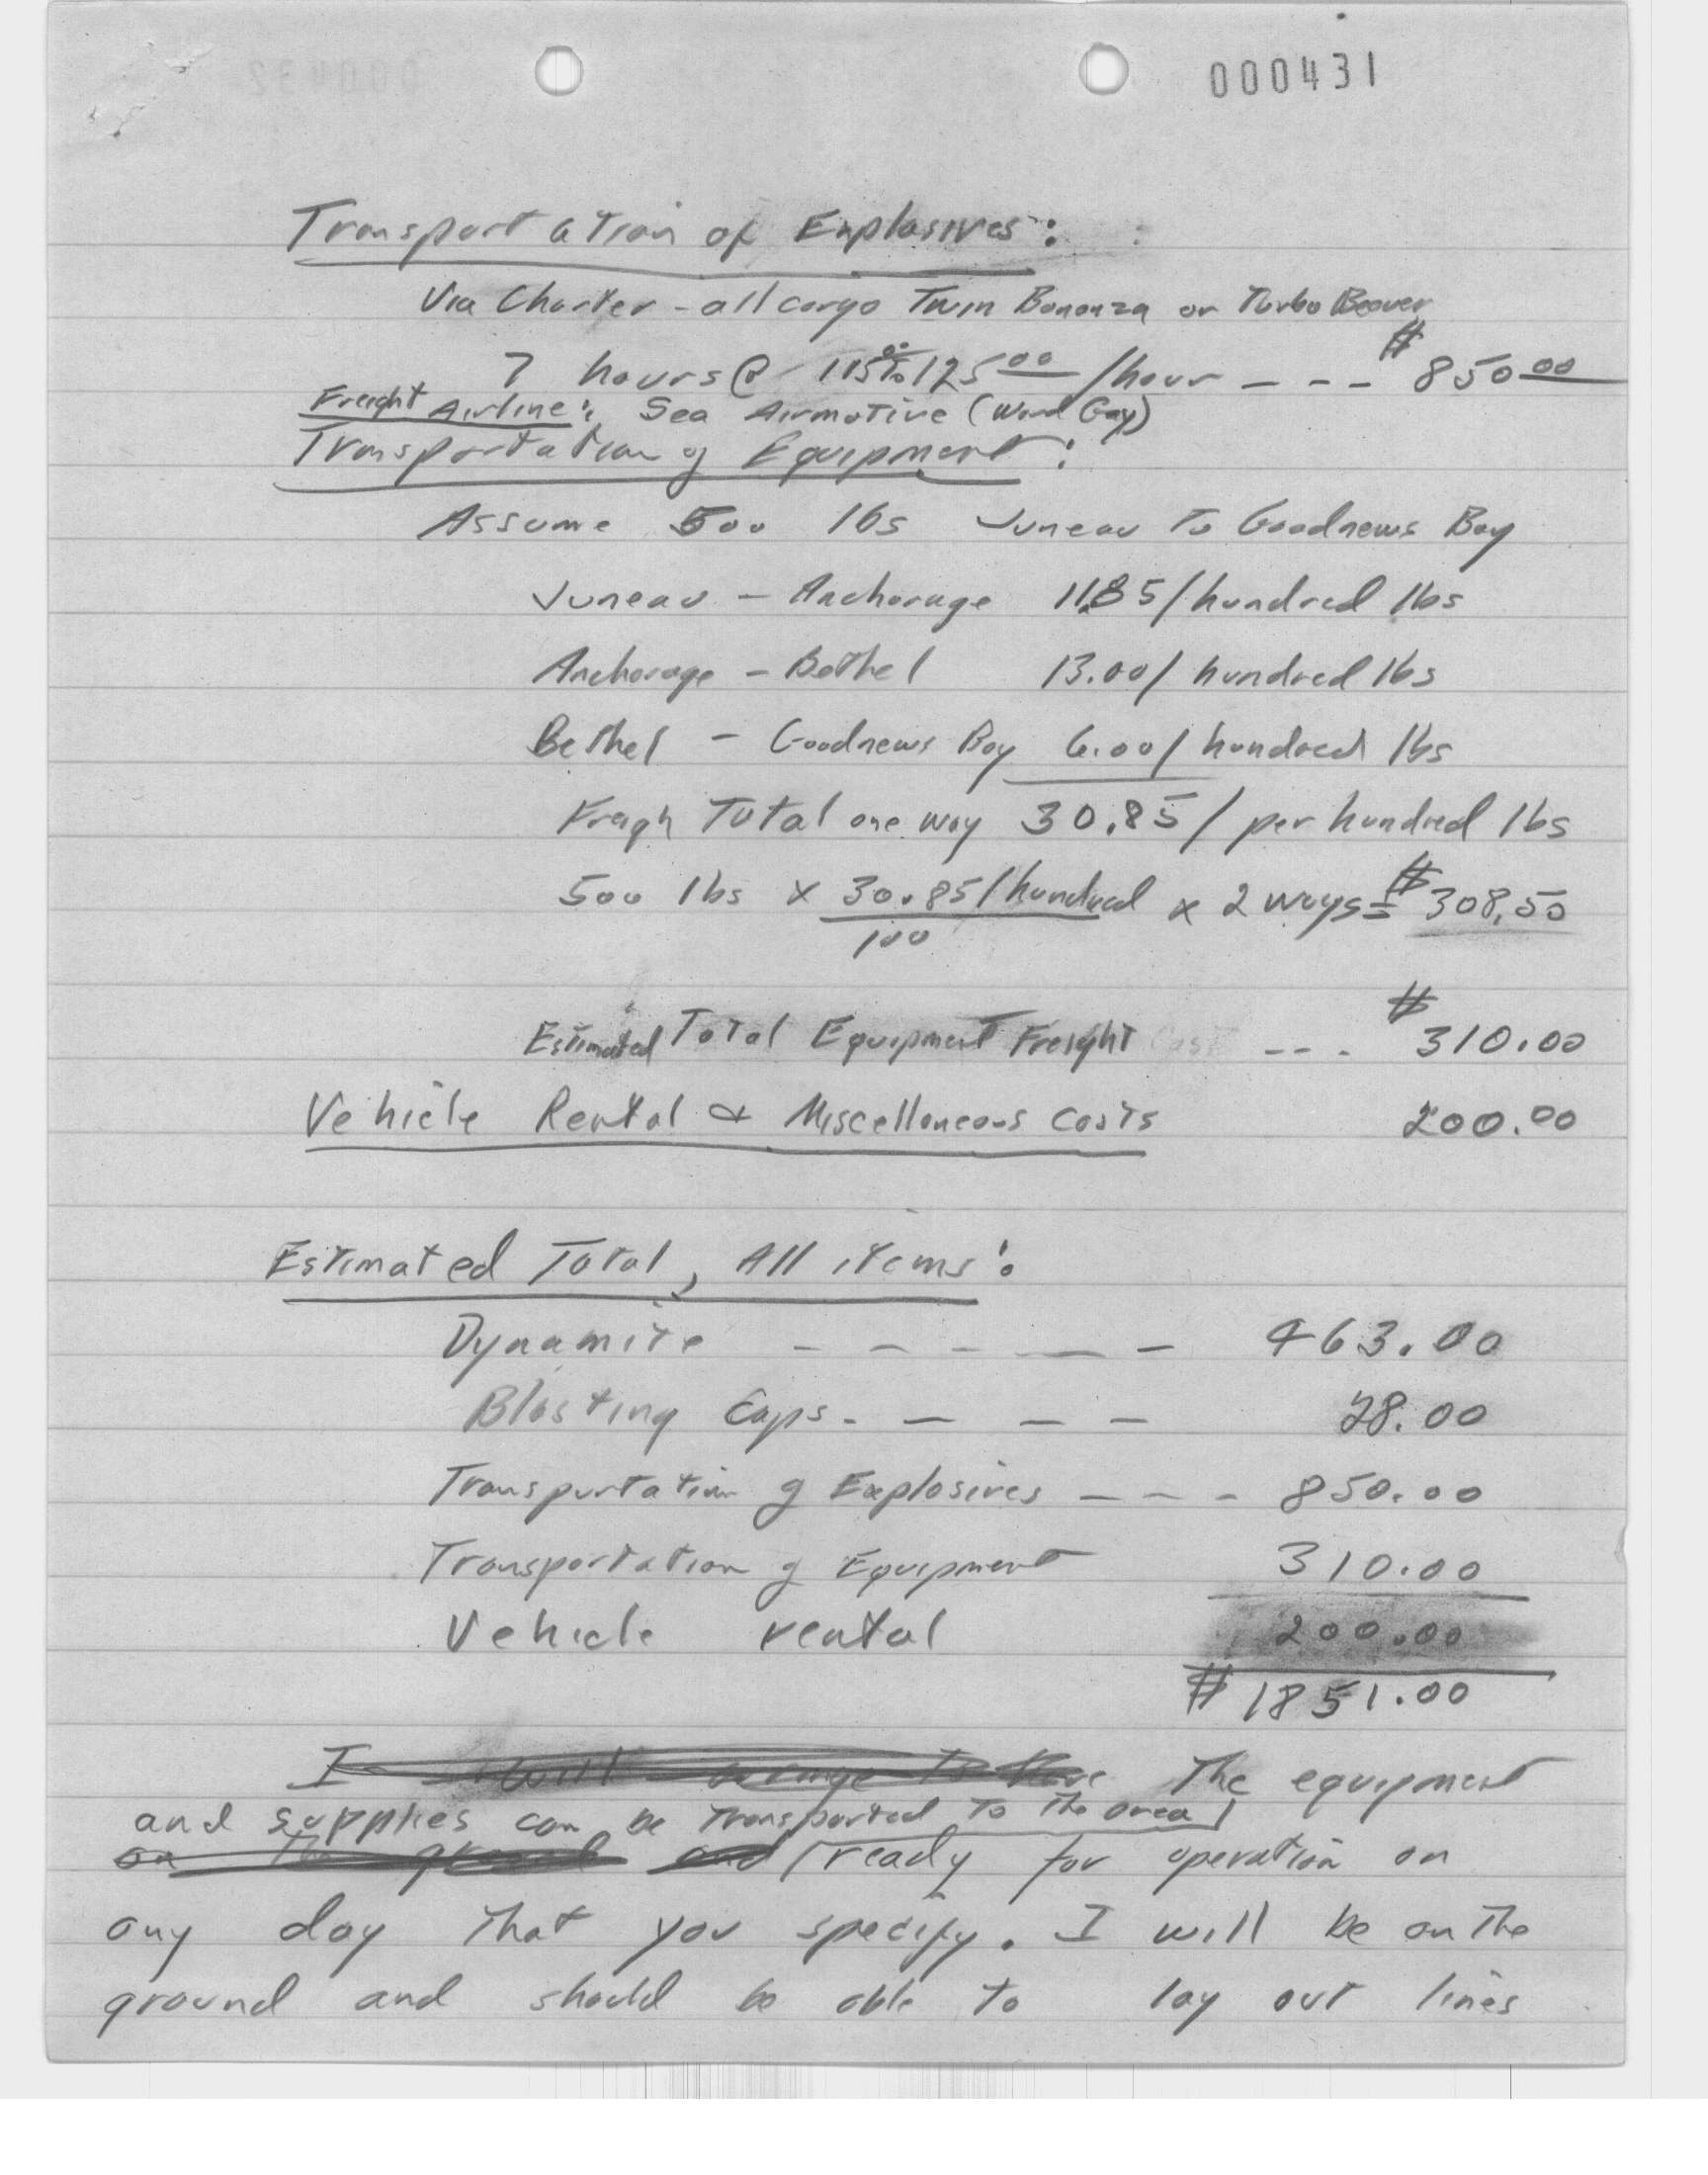 000431
Transportation of Explosives:
Via Charter - all cargo Twin Bonanza or Turbo Beaver
7 hours @ 115.00 To 125.00 /hour - - - $ 850.00
Freight Airline: Sea Airmotive (Ward Gay)
Transportation of Equipment:
Assume 500 lbs Juneau To Goodnews Bay
Juneau - Anchorage 11.85/hundred lbs
Anchorage - Bethel 13.00/ hundred lbs
Bethel - Goodnews Bay 6.00/ hundred lbs
Freigh Total one way 30.85/ per hundred lbs
500 lbs x 30.85/hundred x 2 ways = $308.50
100
Estimated Total Equipment Freight Cost - - - $ 310.00
Vehicle Rental & Miscellaneous costs 200.00
Estimated Total, All items:
Dynamite - - - - - 463.00
Blasting Caps - - - - 28.00
Transportation of Explosives - - - 850.00
Transportation of Equipment 310.00
Vehicle rental 200.00
$ 1851.00
I will arrange to have The equipment
and supplies can be Transported To The area
on the ground and ready for operation on
any day That you specify. I will be on The
ground and should be able to lay out lines